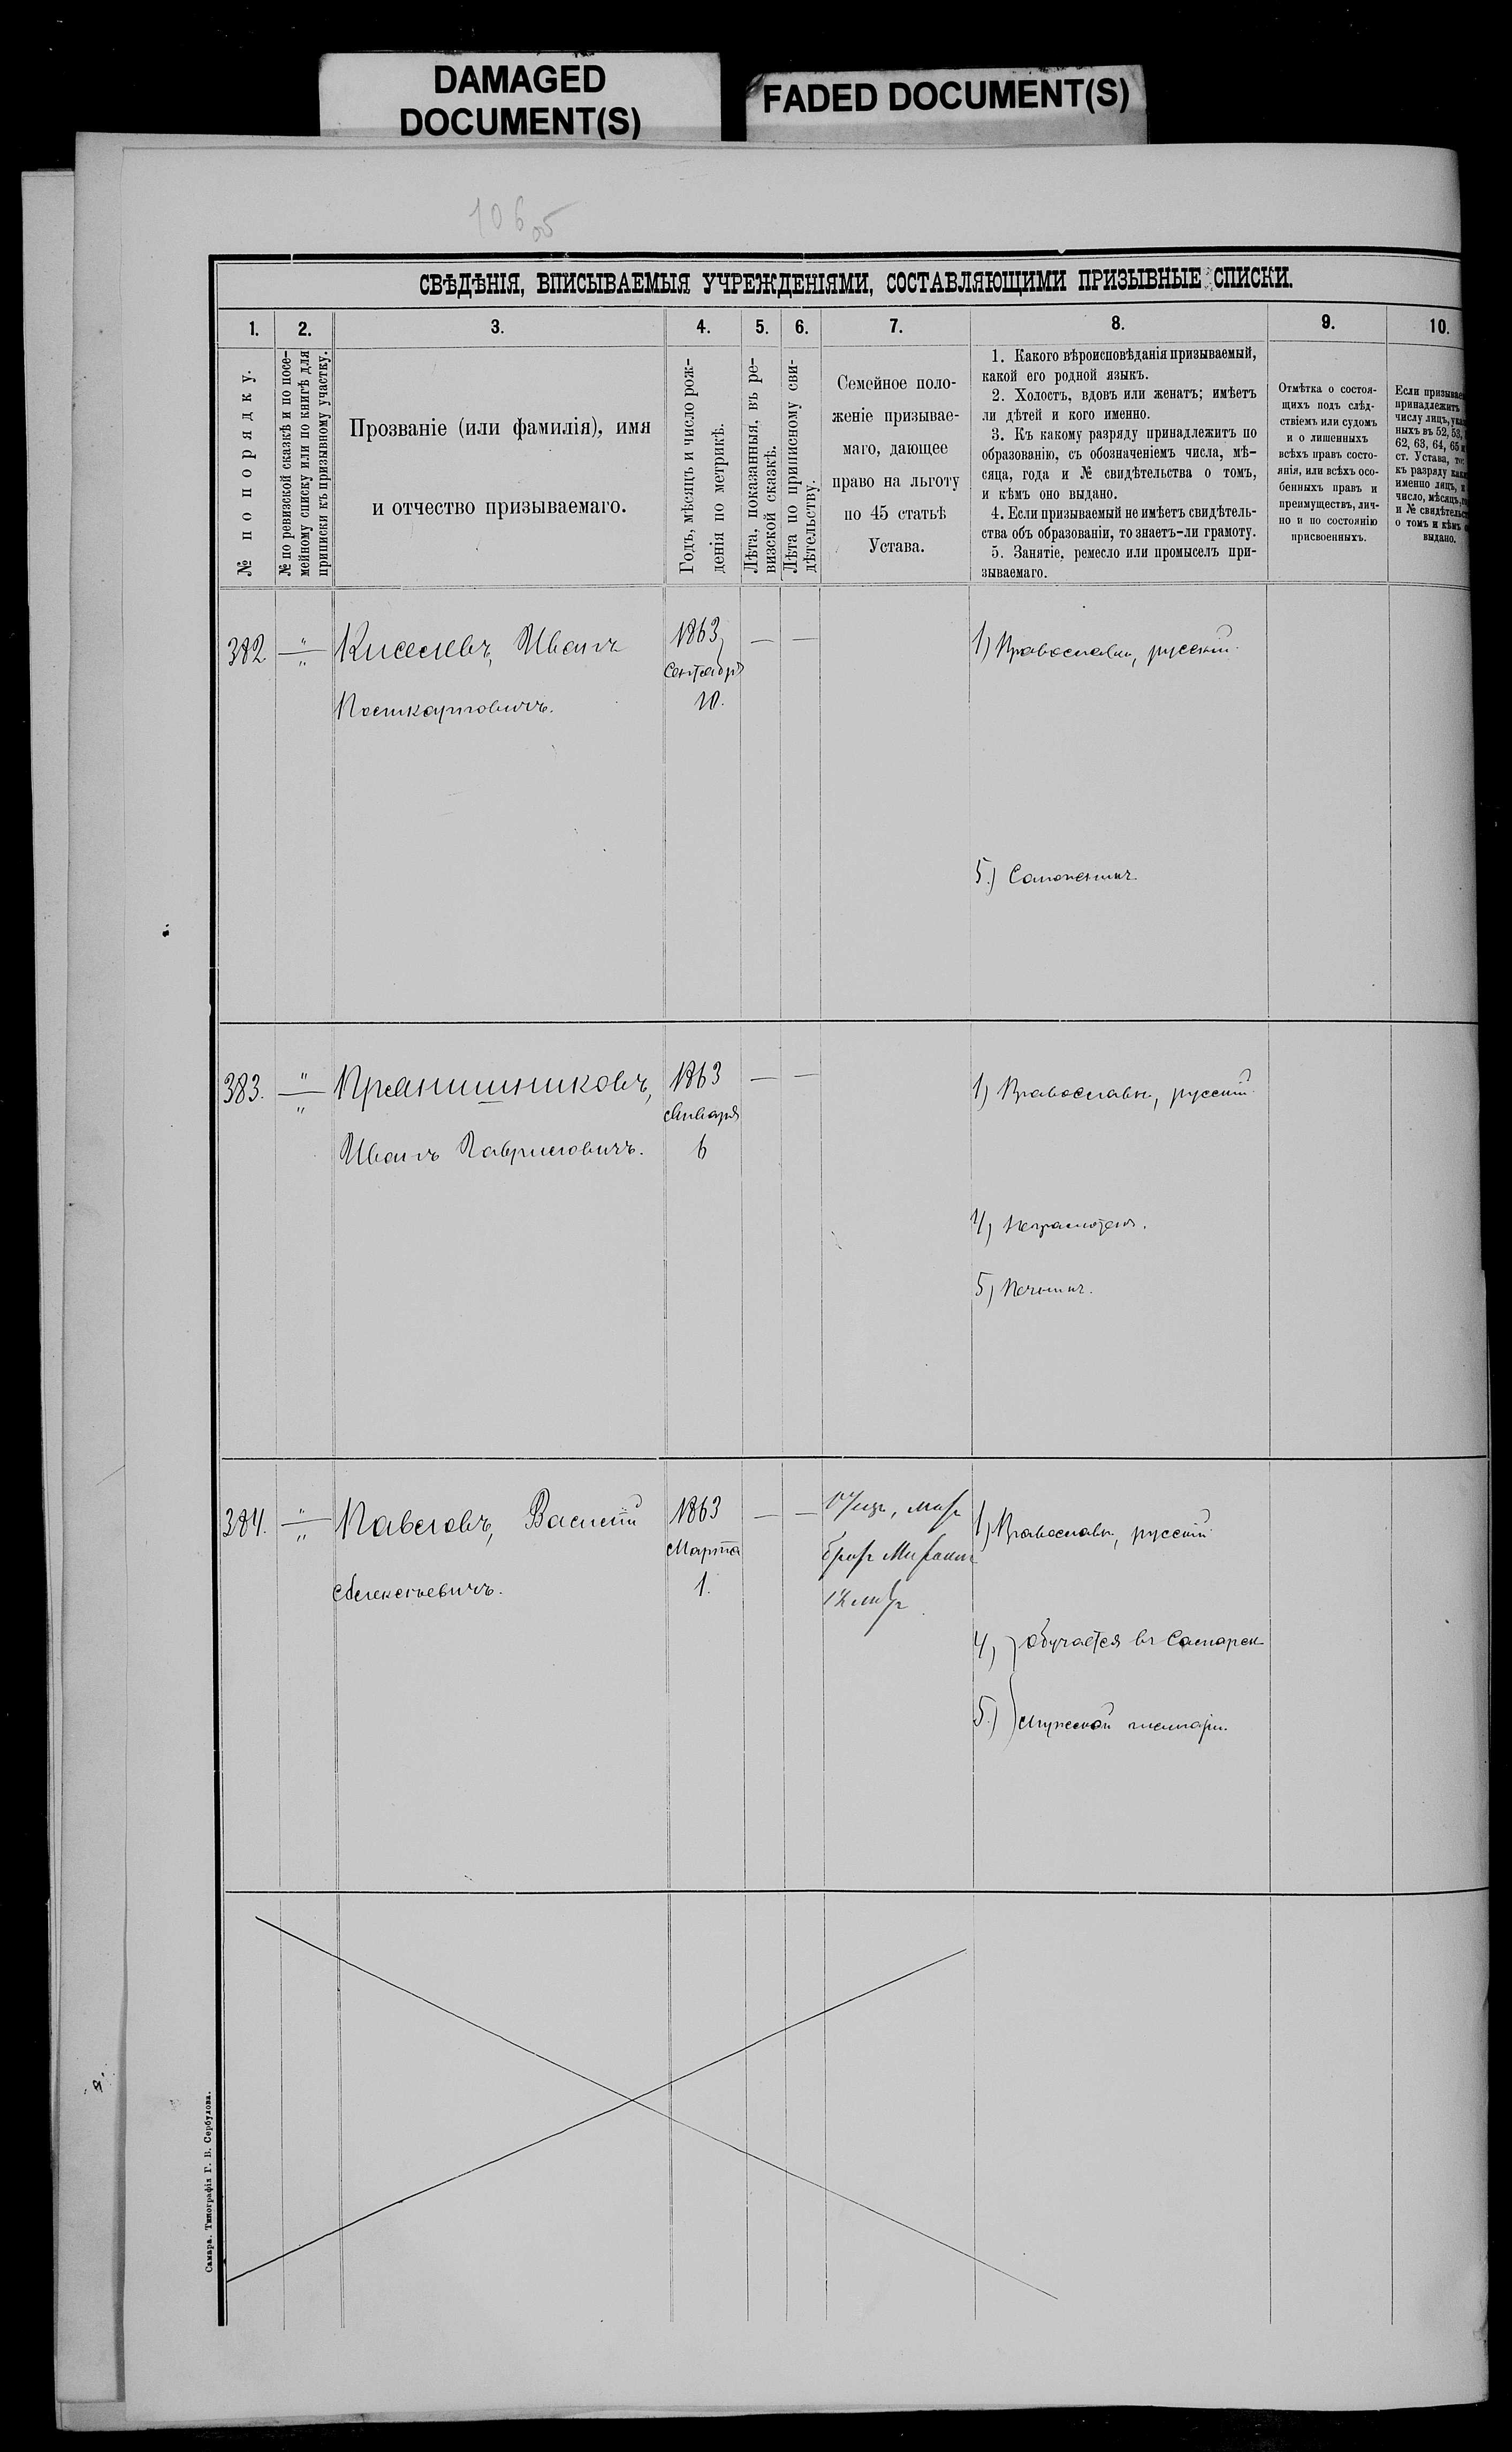 DAMAGED
DOCUMENT(S)
FADED DOCUMENT(S)
106
СВѢДѢНІЯ, ВПИСЫВАЕМЫЯ УЧРЕЖДЕНІЯМИ, СОСТАВЛЯЮЩИМИ ПРИЗЫВНЫЕ СПИСКИ.
1.
2.
3.
4.
5.
6.
7.
8.
9.
10.
№ по порядку.
№ по ревизской сказкѣ и по посе-
мейному списку или по книгѣ для
приписки къ призывному участку.
Прозваніе (или фамилія), имя
и отчество призываемаго.
Годъ, мѣсяцъ и число рож-
денія по метрикѣ.
Лѣта, показанныя, въ ре-
визской сказкѣ.
Лѣта по приписному сви-
дѣтельству.
Семейное поло-
женіе призывае-
маго, дающее
право на льготу
по 45 статьѣ
Устава.
1. Какого вѣроисповѣданія призываемый,
какой его родной языкъ.
2. Холостъ, вдовъ или женатъ; имѣетъ
ли дѣтей и кого именно.
3. Къ какому разряду принадлежитъ по
образованію, съ обозначеніемъ числа, мѣ-
сяца, года и № свидѣтельства о томъ,
и кѣмъ оно выдано.
4. Если призываемый не имѣетъ свидѣтель-
ства объ образованіи, то знаетъ-ли грамоту.
5. Занятіе, ремесло или промыселъ при-
зываемаго.
Отмѣтка о состоя-
щихъ подъ слѣд-
ствіемъ или судомъ
и о лишенныхъ
всѣхъ правъ состо-
янія, или всѣхъ осо-
бенныхъ правъ и
преимуществъ, лич-
но и по состоянію
присвоенныхъ.
Если призывае
принадлежитъ
числу лицъ, ука
ныхъ въ 52, 53,
62, 63, 64, 65 и
ст. Устава, то:
къ разряду как
именно лицъ, и
число, мѣсяцъ,
и № свидѣтельс
о томъ и кѣмъ
выдано.
382 — „ — Киселевъ, Иванъ 1863 — — 1) Православн, русскій.
Сентября
Поликарповичъ. 10.
5.) Сапожникъ.
383. — „ — Прянишниковъ, 1863 — — 1) Православн, русскій.
Января
Иванъ Гавриловичъ. 6
4) Неграмотенъ.
5) Печникъ.
384. — „ — Павловъ, Василій 1863 — — Отецъ, мать 1) Православн, русскій
Марта братъ Михаилъ
Алексѣевичъ. 1. 12 лѣтъ
4) обучается въ Самарск
5.) мужской гимназіи.
Самара. Типографія Г. В. Сербулова.